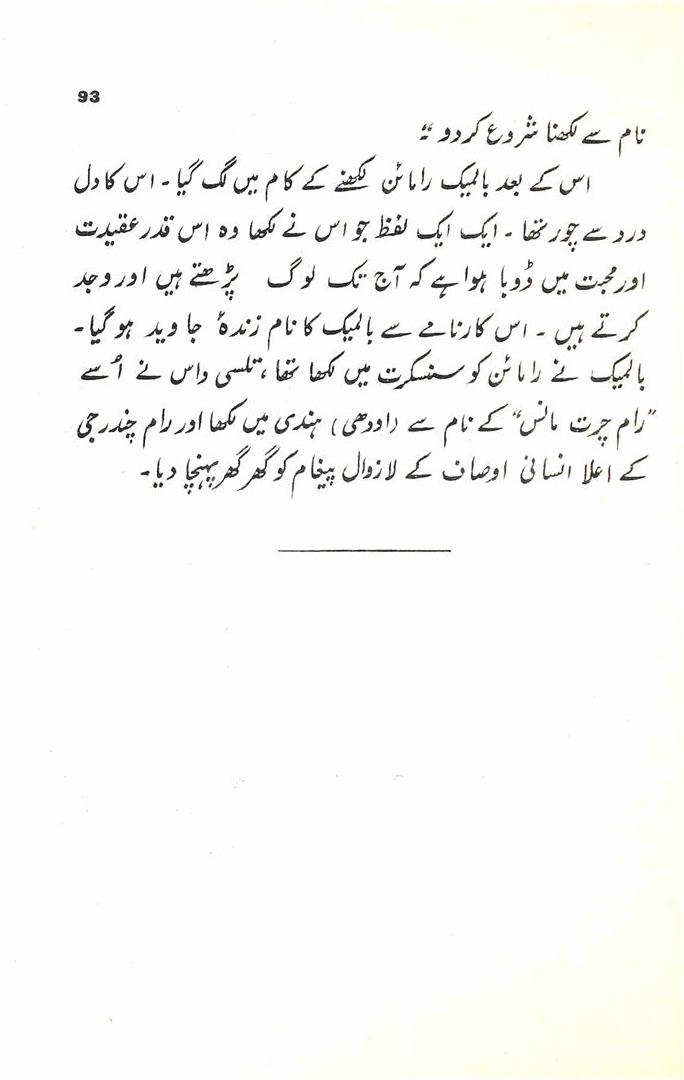 93
نام سے لکھنا شروع کردو ؛؛
اس کے بعد بالمیک رامائن لکھنے کے کام میں لگ گیا۔ اس کا دل
درد سے چور تھا۔ ایک ایک لفظ جو اس نے لکھا وہ اس قدر عقیدت
اور محبت میں ڈوبا ہوا ہے کہ آج تک لوگ پڑھتے ہیں اور وجد
کرتے ہیں۔ اس کارنامے سے بالمیک کا نام زندۂ جاوید ہو گیا۔
بالمیک نے رامائن کو سنسکرت میں لکھا تھا، تلسی داس نے اُسے
”رام چرت مانس“ کے نام سے (اودھی) ہندی میں لکھا اور رام چندرجی
کے اعلا انسانی اوصاف کے لازوال پیغام کو گھر گھر پہنچا دیا۔